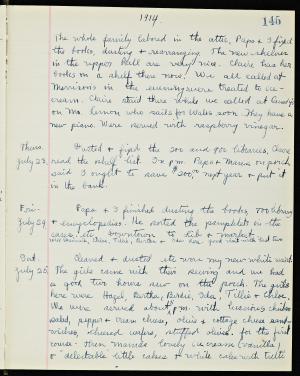 1914.
145
The whole family labored in the attic, Papa & I fixed
the books, dusting & rearranging. The new shelves
in the upper hall are very nice. Claire has her
books on a shelf there now. We all called at
Morrisons in the evening & were treated to ice-
cream. Claire stayed there while we called at
on Ms. Lennon who sails for Wales soon. They have a
new piano. Were served with raspberry vinegar.
Thurs.
July 23.
Dusted & fixed the 300 and 900 libraries, Claire
read the whole list. In p.m. Papa & Mama on porch
said I ought to save $200 next year & put it
in the bank.
Fri.
July 24
Papa & I finished dusting the books, 700 library
& encyclopedias. He sorted the pamphlets in the
cases, etc. Downtown to lib. & market.
Sat.
July 25.
Cleaned & dusted etc. wore my new white waist.
The girls came with their sewing and we had
a good two hours sew on the porch. The girls
here were Hazel, Bertha, Birdie, Ida, Tillie & Chloe.
We were served about p.m. with luscious chicken
salad, pepper & cream cheese, olive & cottage cheese sand-
wiches, cheesed wafers, stuffed olives for the first
course. Then Mama's lovely ice cream (vanilla),
& delectable little cakes & white cake with tutti